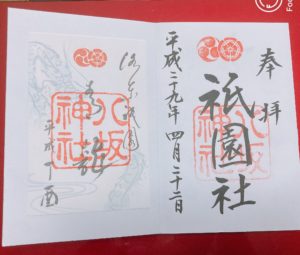 奉拝
八坂神社
祇園社
平成二十九年 四月二十二日
八坂神社
青龍
平成丁酉